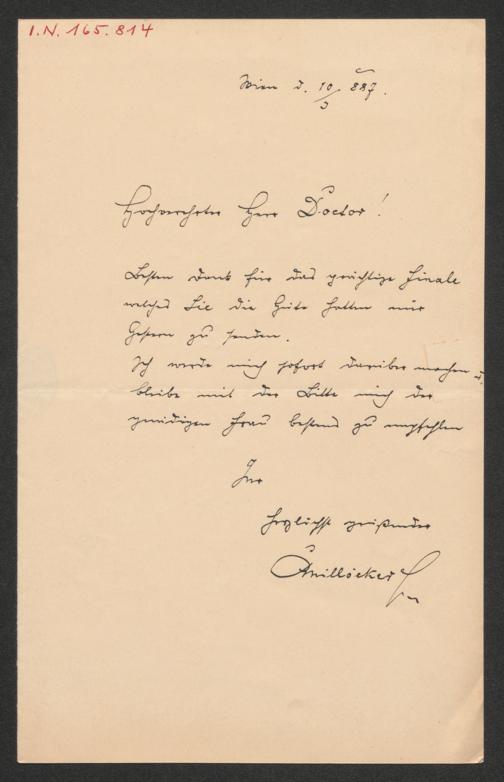 I.N. 165.814
Wien d. 10/3 887.
Hochverehrter Herr Doctor!
Besten Dank für das prächtige Finale
welches Sie die Güte hatten mir
Gestern zu senden.
Ich werde mich sofort darüber machen u.
bleibe mit der Bitte mich der
gnädigen Frau bestens zu empfehlen
Ihr
herzlichst grüßender
CMillöcker